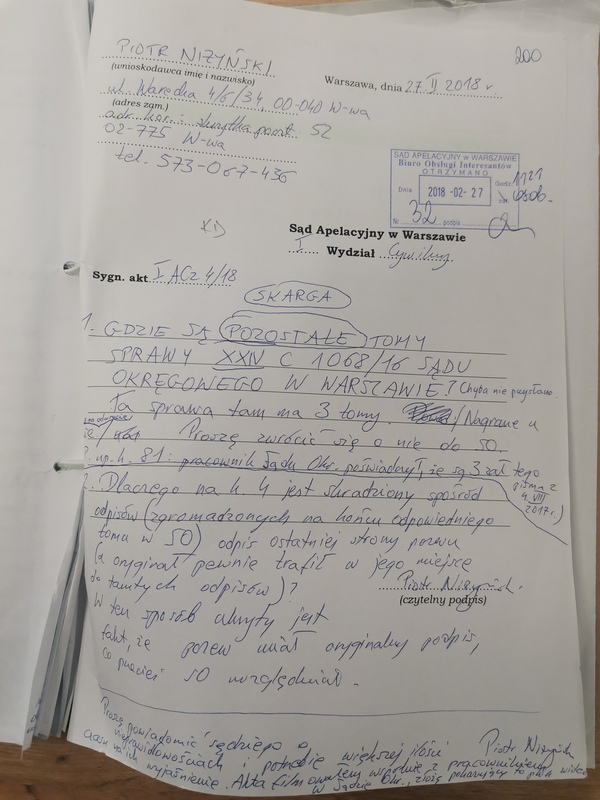 200
PIOTR NIŻYŃSKI
(wnioskodawca imię i nazwisko)
Warszawa, dnia 27. II 2018 r.
ul. Warecka 4/6/34, 00-040 W-wa
(adres zam.)
adr. kor.: skrytka poczt. 52
02-775 W-wa
tel. 573-067-436
SĄD APELACYJNY w WARSZAWIE
Biuro Obsługi Interesantów
OTRZYMANO
Dnia 2018 -02- 27 Godz. 1121
zał. osob.
Nr 32 podpis
Sąd Apelacyjny w Warszawie
I Wydział Cywilny
Sygn. akt I ACz 4/18
SKARGA
1. GDZIE SĄ POZOSTAŁE TOMY
SPRAWY XXIV C 1068/16 SĄDU
OKRĘGOWEGO W WARSZAWIE? Chyba nie przysłano.
Ta sprawa tam ma 3 tomy. /Nagrane
Proszę zwrócić się o nie do SO.
np. k. 81: pracownik Sądu Okr. poświadczył, że są 3 zał. tego
pisma z
4. VIII
2017 r.)
2. Dlaczego na k. 4 jest skradziony spośród
odpisów (zgromadzonych na końcu odpowiedniego
tomu w SO) odpis ostatniej strony pozwu
(a oryginał pewnie trafił w jego miejsce
do tamtych odpisów)?
Piotr Niżyński
(czytelny podpis)
W ten sposób ukryty jest
fakt, że pozew miał oryginalny podpis,
co przecież SO uwzględniał.
Proszę powiadomić sędziego o
nieprawidłowościach i potrzebie większej ilości
Piotr Niżyński
czasu na ich wyjaśnienie. Akta filmowałem wspólnie z pracownikiem
w Sądzie Okr., złożę pokazujący to plik wideo